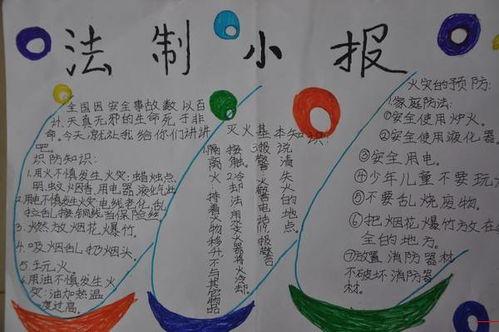 法制小报
全国因安全事故数以百
计.天真无邪的生命死于非
命。今天,就让我给你们讲讲
吧。
识防知识:
1.用火不慎发生火灾:蜡烛点
明,蚊烟香,用电器,液化气灶
2.用电不慎发生火灾电线老化,乱
拉乱接,铜线当保险丝
3.燃放烟花爆竹。
4.吸烟乱扔烟头。
5.玩火
6.用油不慎发生火
灾:油加热温
度过高。
灭火基本知识:
3.报警:报警电话
接通后说清失火的地点
2.冷却法:用灭火器将火冷却
火:将着火物移开不与其它物品
接触
火灾的预防:
1.家庭防法:
①安全使用炉火。
②安全使用液化器
③安全用电。
④少年儿童不要玩火
⑤不要乱烧废物。
⑥把烟花爆竹放在
全的地方。
⑦放置消防器材,
不破坏消防器
材。